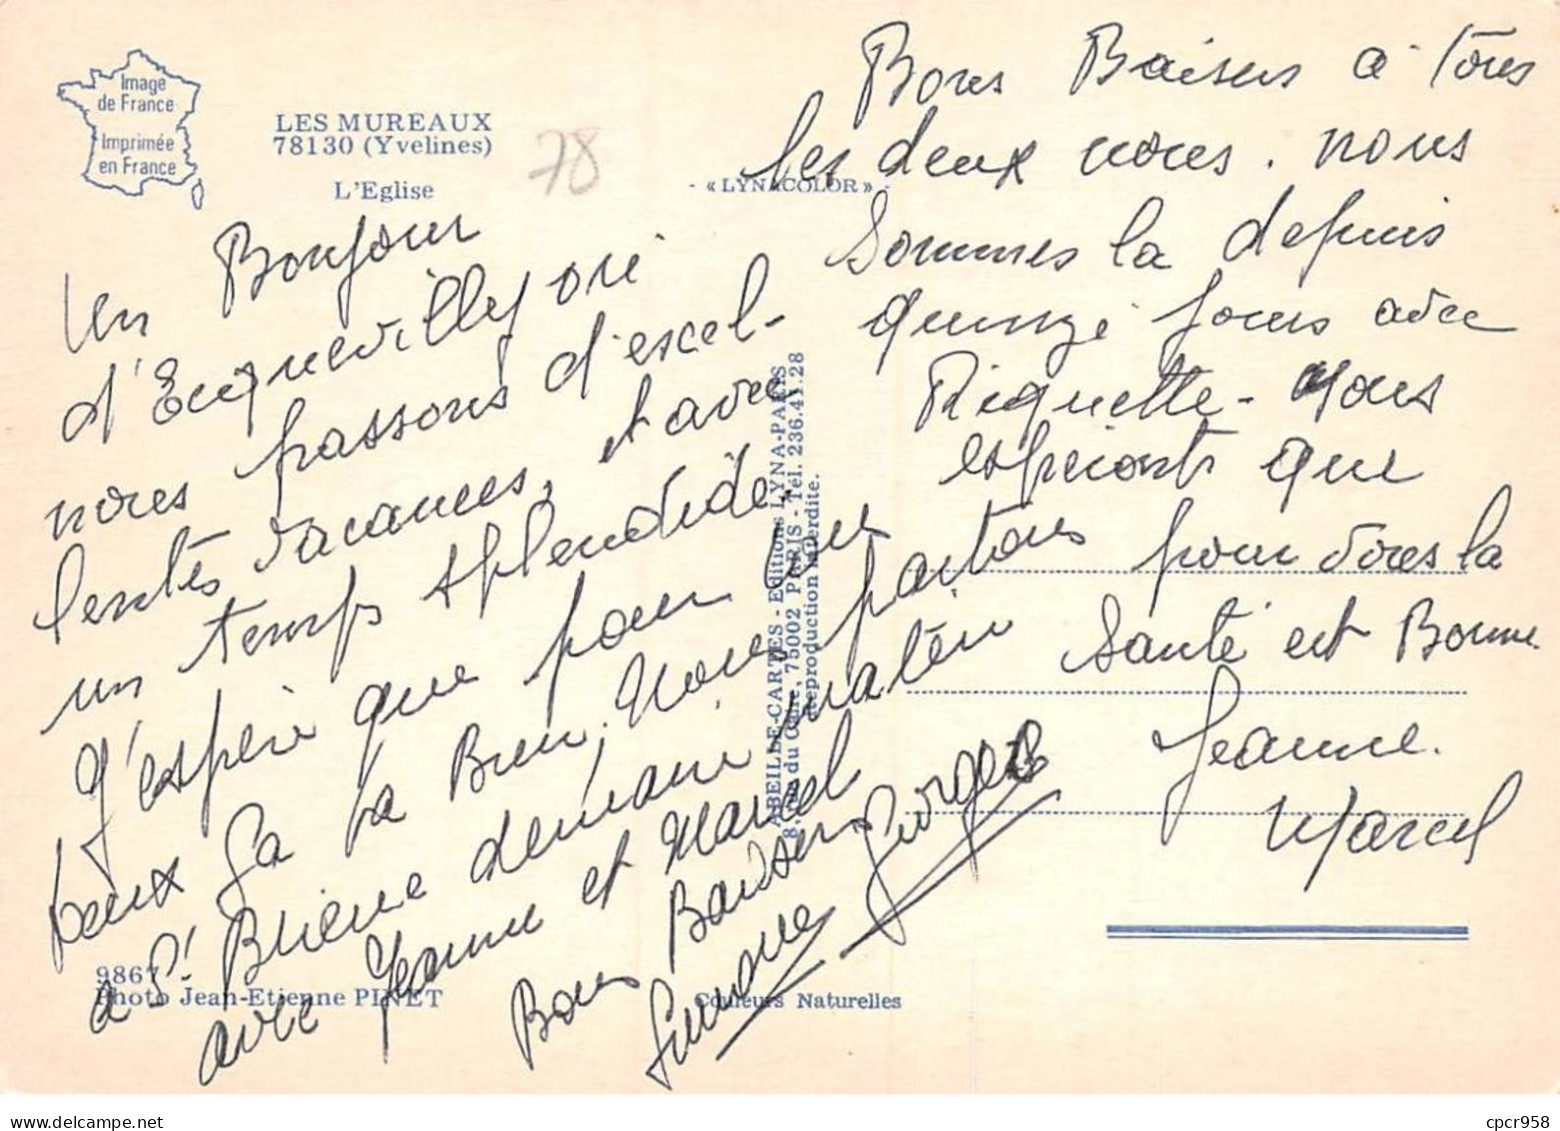 Image
de France
Imprimée
en France
LES MUREAUX
78130 (Yvelines)
L'Eglise
78
- « LYNACOLOR » -
Un Bonjour
d'Ecquevilly où
nous passons d'excel-
lentes vacances, et avec
un temps splendide.
J'espère que pour
vous ça va Bien, Nous partons
a St Brieuc demain matin
avec Jeanne et Marcel
Bons Baisers
Simone Georges
Bons Baisers a Tous
les deux nous. nous
Sommes la depuis
quinze jours avec
Riquette - Nous
espérons que
pour vous la
Santé est Bonne.
Jeanne.
Marcel
ABEILLE-CARTES - Editions LYNA-PARIS
8, rue du Caire, 75002 PARIS - Tél. 236.41.28
Reproduction interdite.
9867
Photo Jean-Etienne PINET
Couleurs Naturelles
delcampe.net
cpcr958